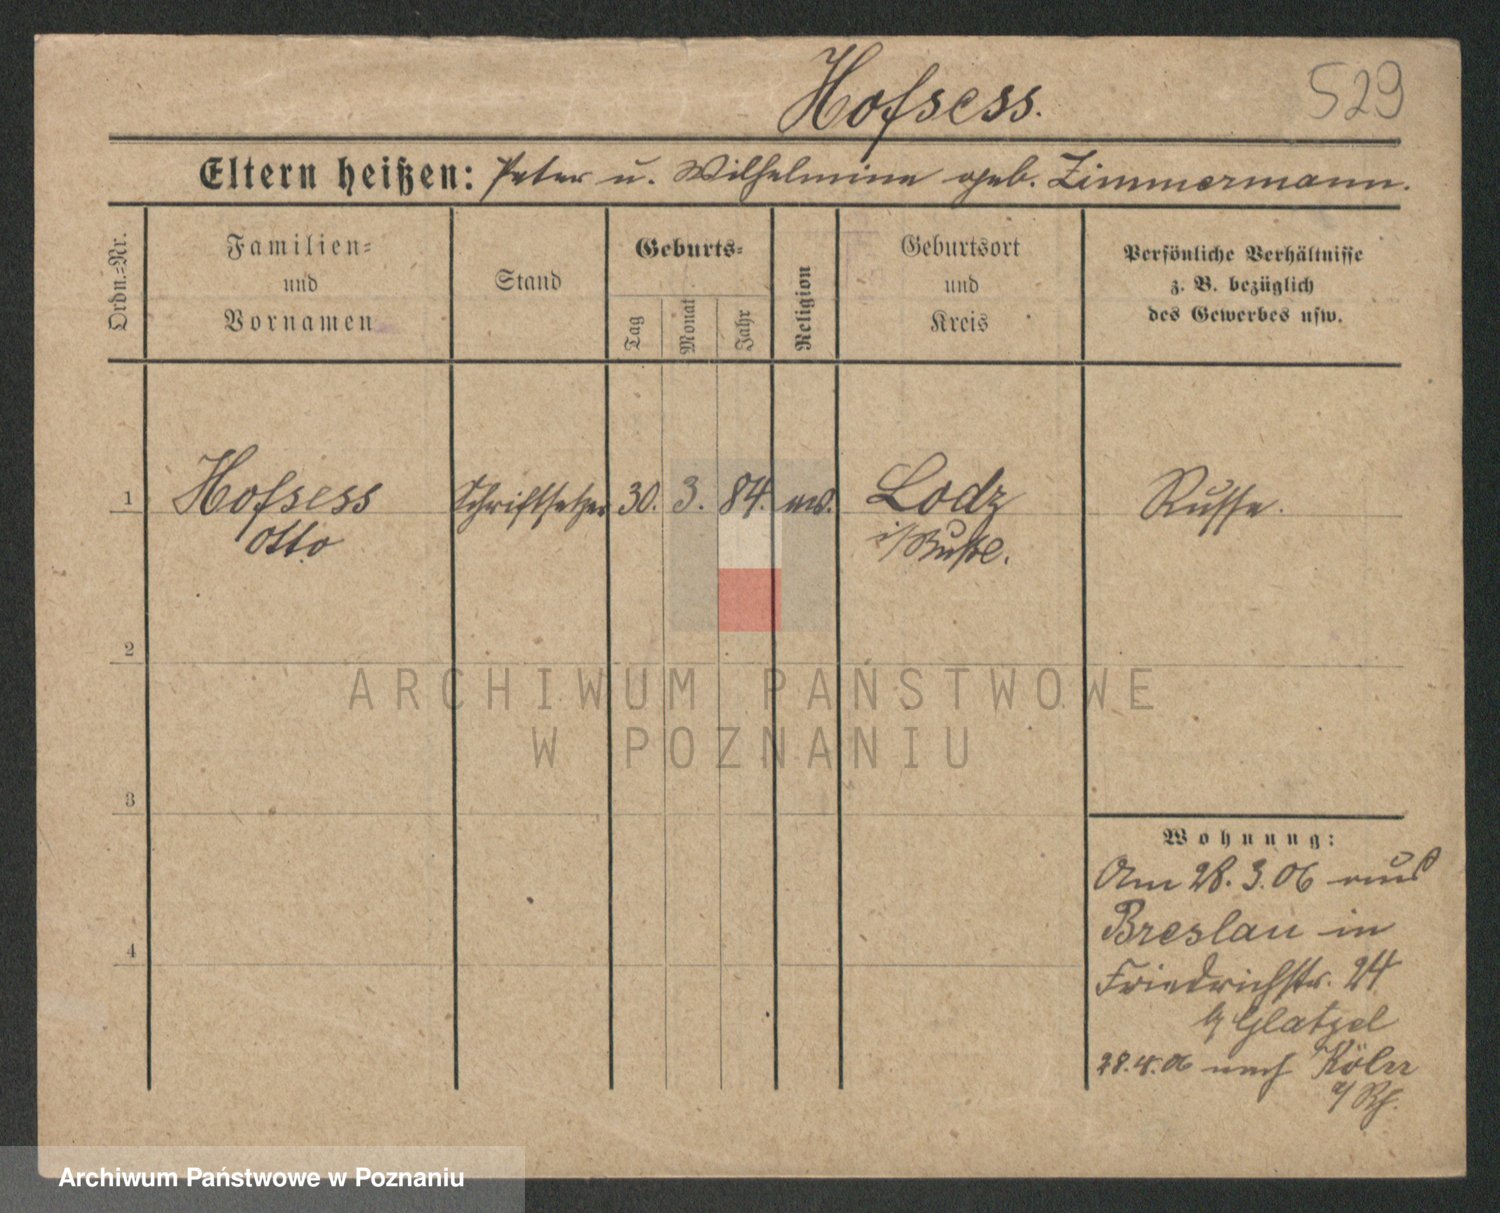 Hofsess.
529
Eltern heißen: Peter u. Wilhelmine geb. Zimmermann.
Ordn.=Nr.
Familien=
und
Vornamen
Stand
Geburts=
Tag
Monat
Jahr
Religion
Geburtsort
und
Kreis
Persönliche Verhältnisse
z. B. bezüglich
des Gewerbes usw.
1 Hofsess Schriftsetzer 30. 3. 84. Lodz Russe.
Otto
2
ARCHIWUM PAŃSTWOWE
W POZNANIU
3
Wohnung:
Am 28.3.06 aus
Breslau in
4
Friedrichstr. 24
Glatzel
28.4.06 nach Köln
a/Rh.
Archiwum Państwowe w Poznaniu